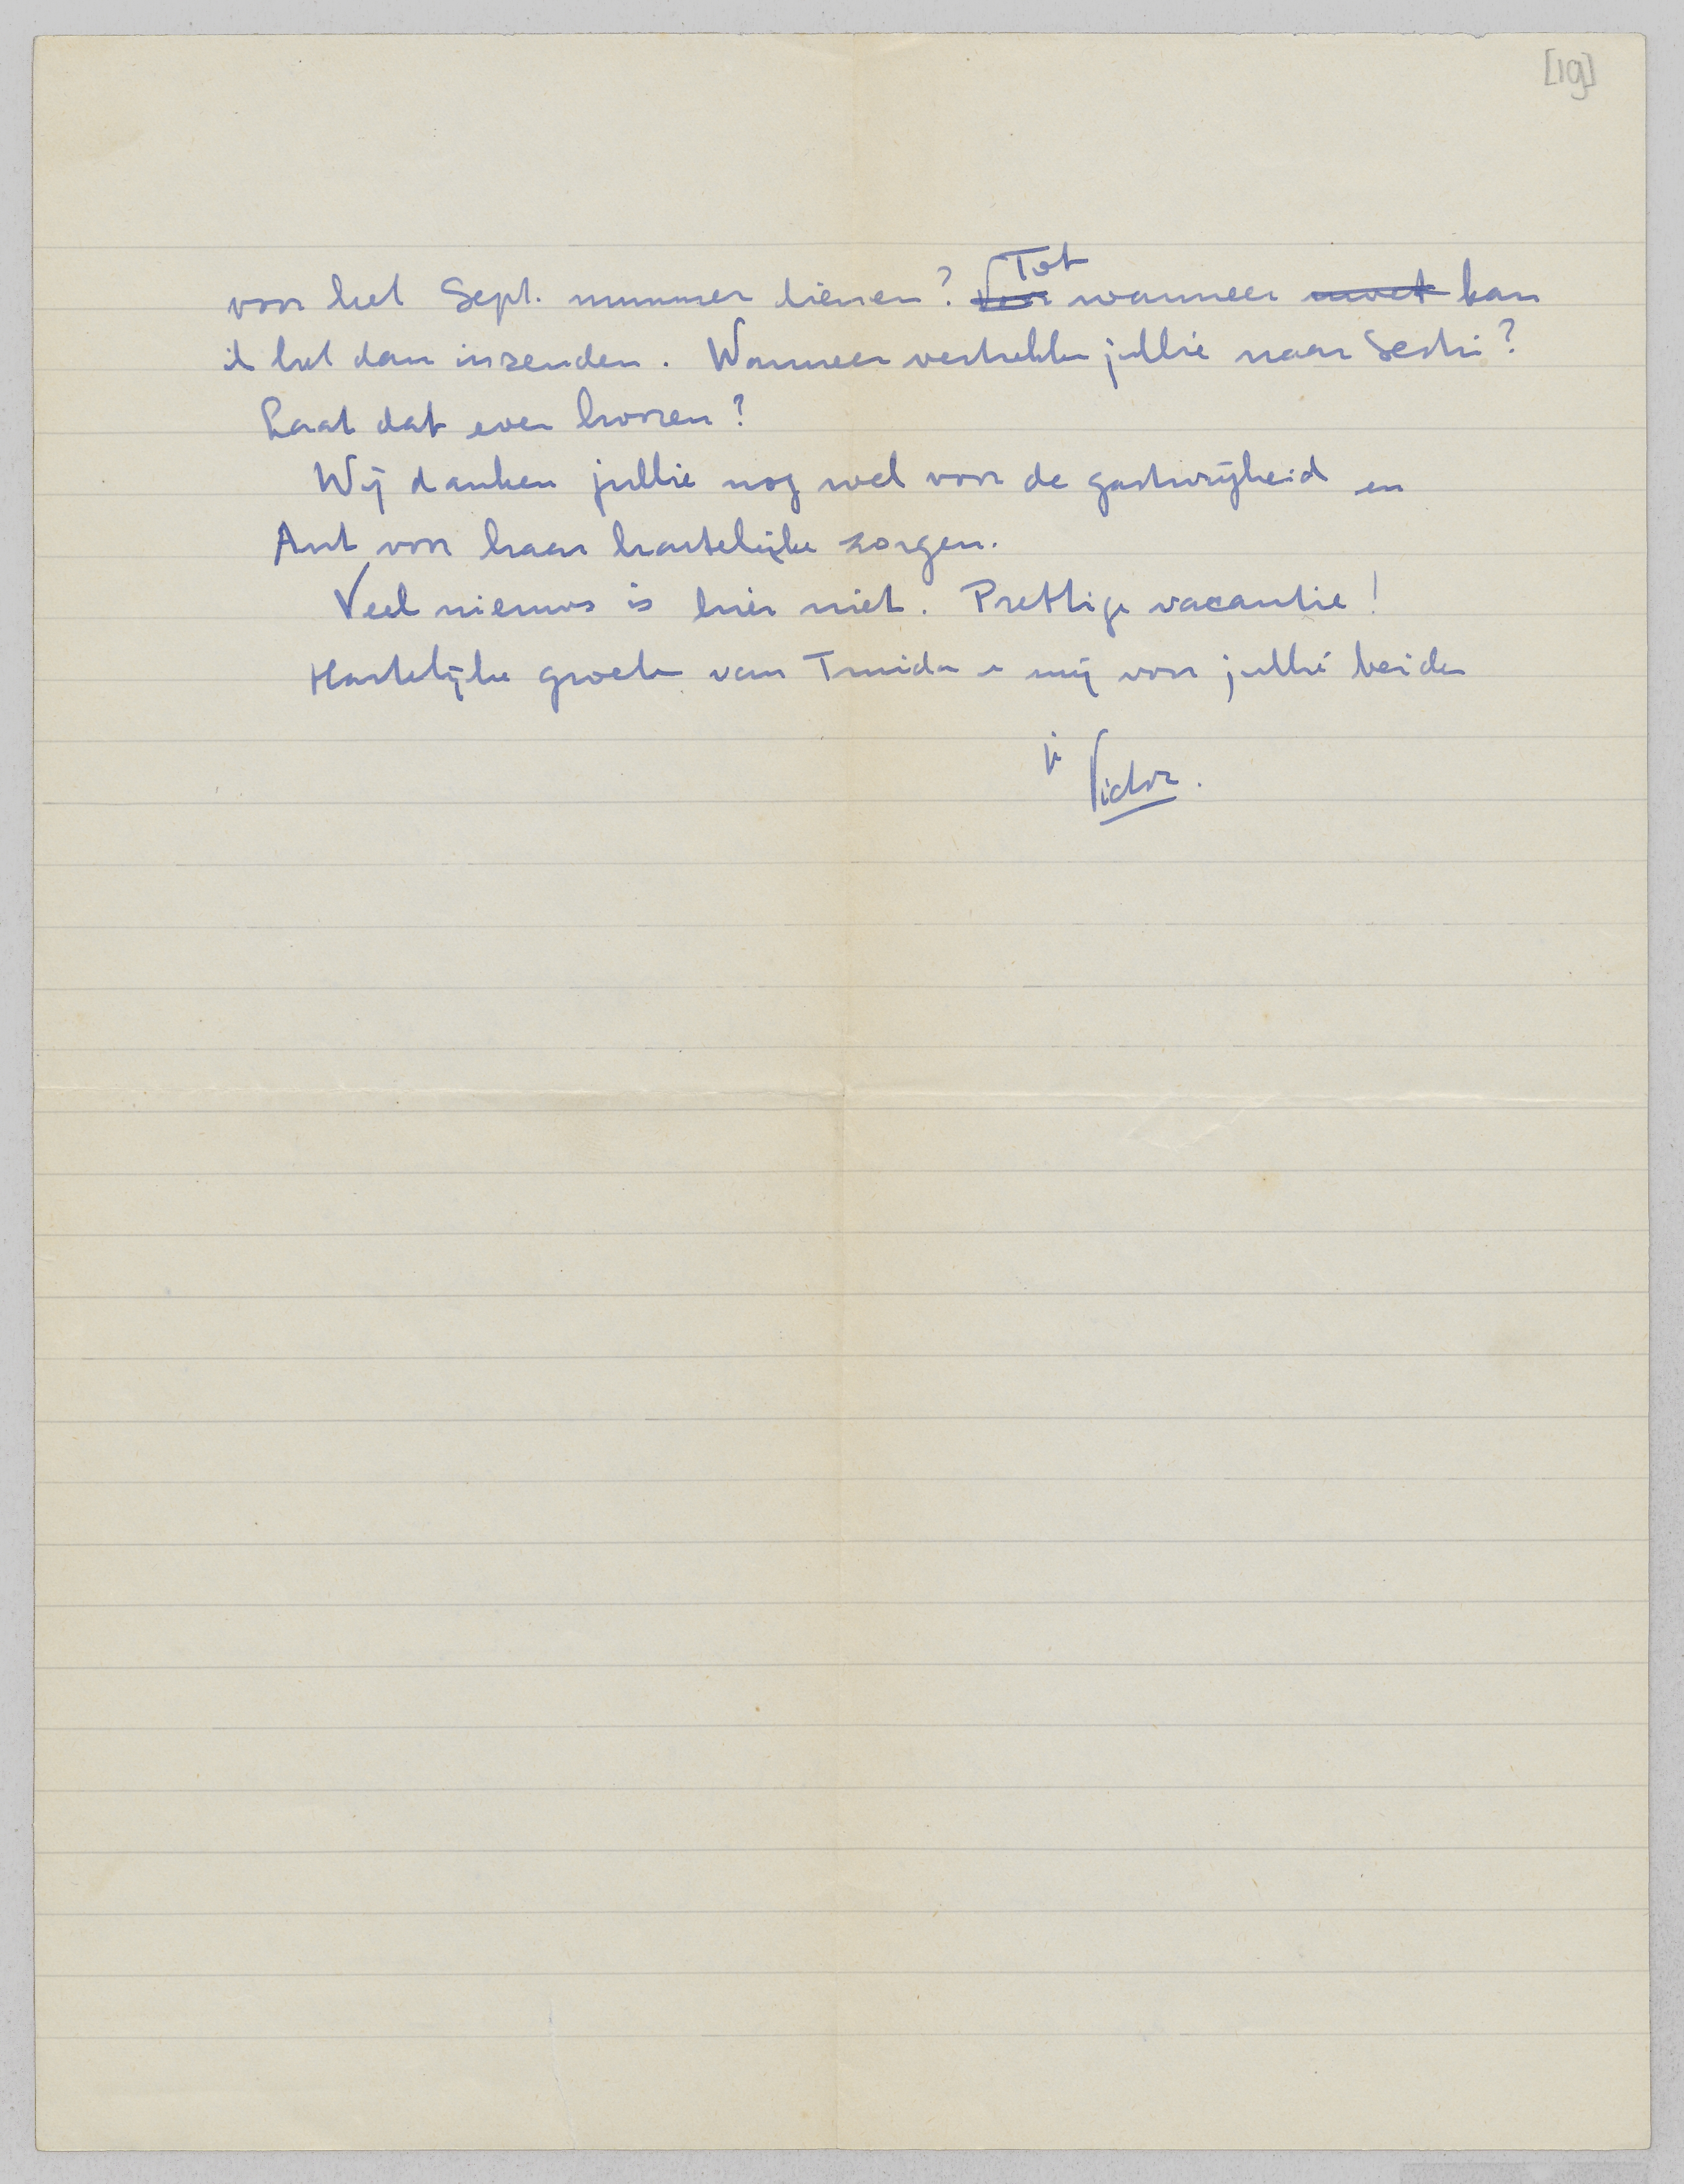 [19]
voor het Sept. nummer dienen? ~~Voor~~ Tot wanneer ~~moet~~ kan
ik het dan inzenden. Wanneer vertrekken jullie naar Sestri?
Laat dat even hooren?
Wij danken jullie nog wel voor de gastvrijheid en
Ant voor haar hartelijke zorgen.
Veel nieuws is hier niet. Prettige vacantie!
Hartelijke groeten van Truida en mij voor jullie beiden
je Victor.